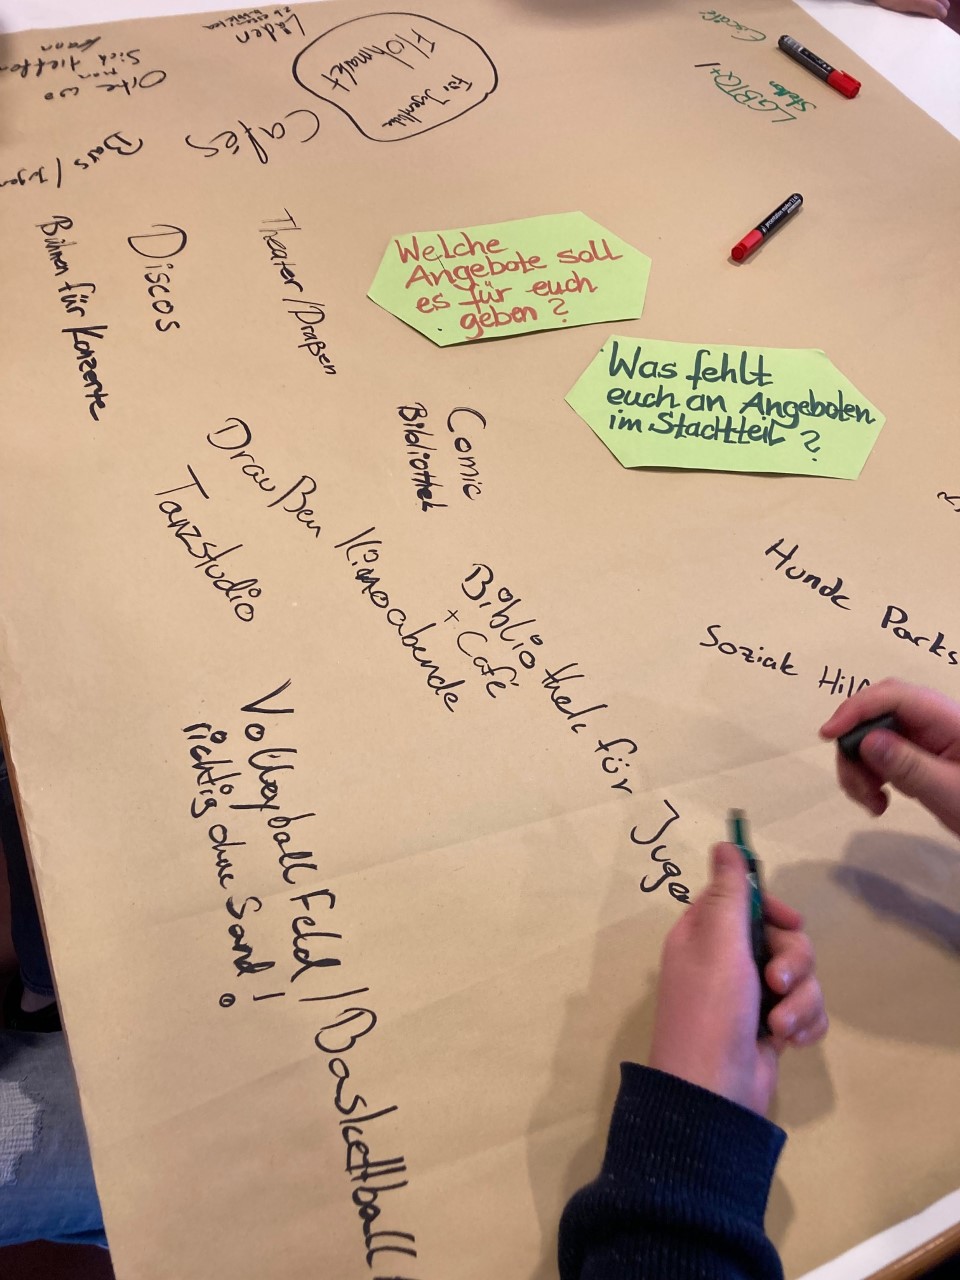 Eiscafé
LGBTQ+
Stellen
Läden
Flohmarkt
für Jugendliche
Orte wo
man
sich treffen
kann
Cafés
Bars /
Bühnen für Konzerte
Discos
Theater / Draußen
Welche
Angebote soll
es für euch
geben?
Was fehlt
euch an Angeboten
im Stadtteil?
Comic
Bibliothek
Draußen Kinoabende
Tanzstudio
Bibliothek für Jugen
+ Café
Hunde Parks
Soziale Hilf
Volleyball Feld / Basketball
richtig ohne Sand!